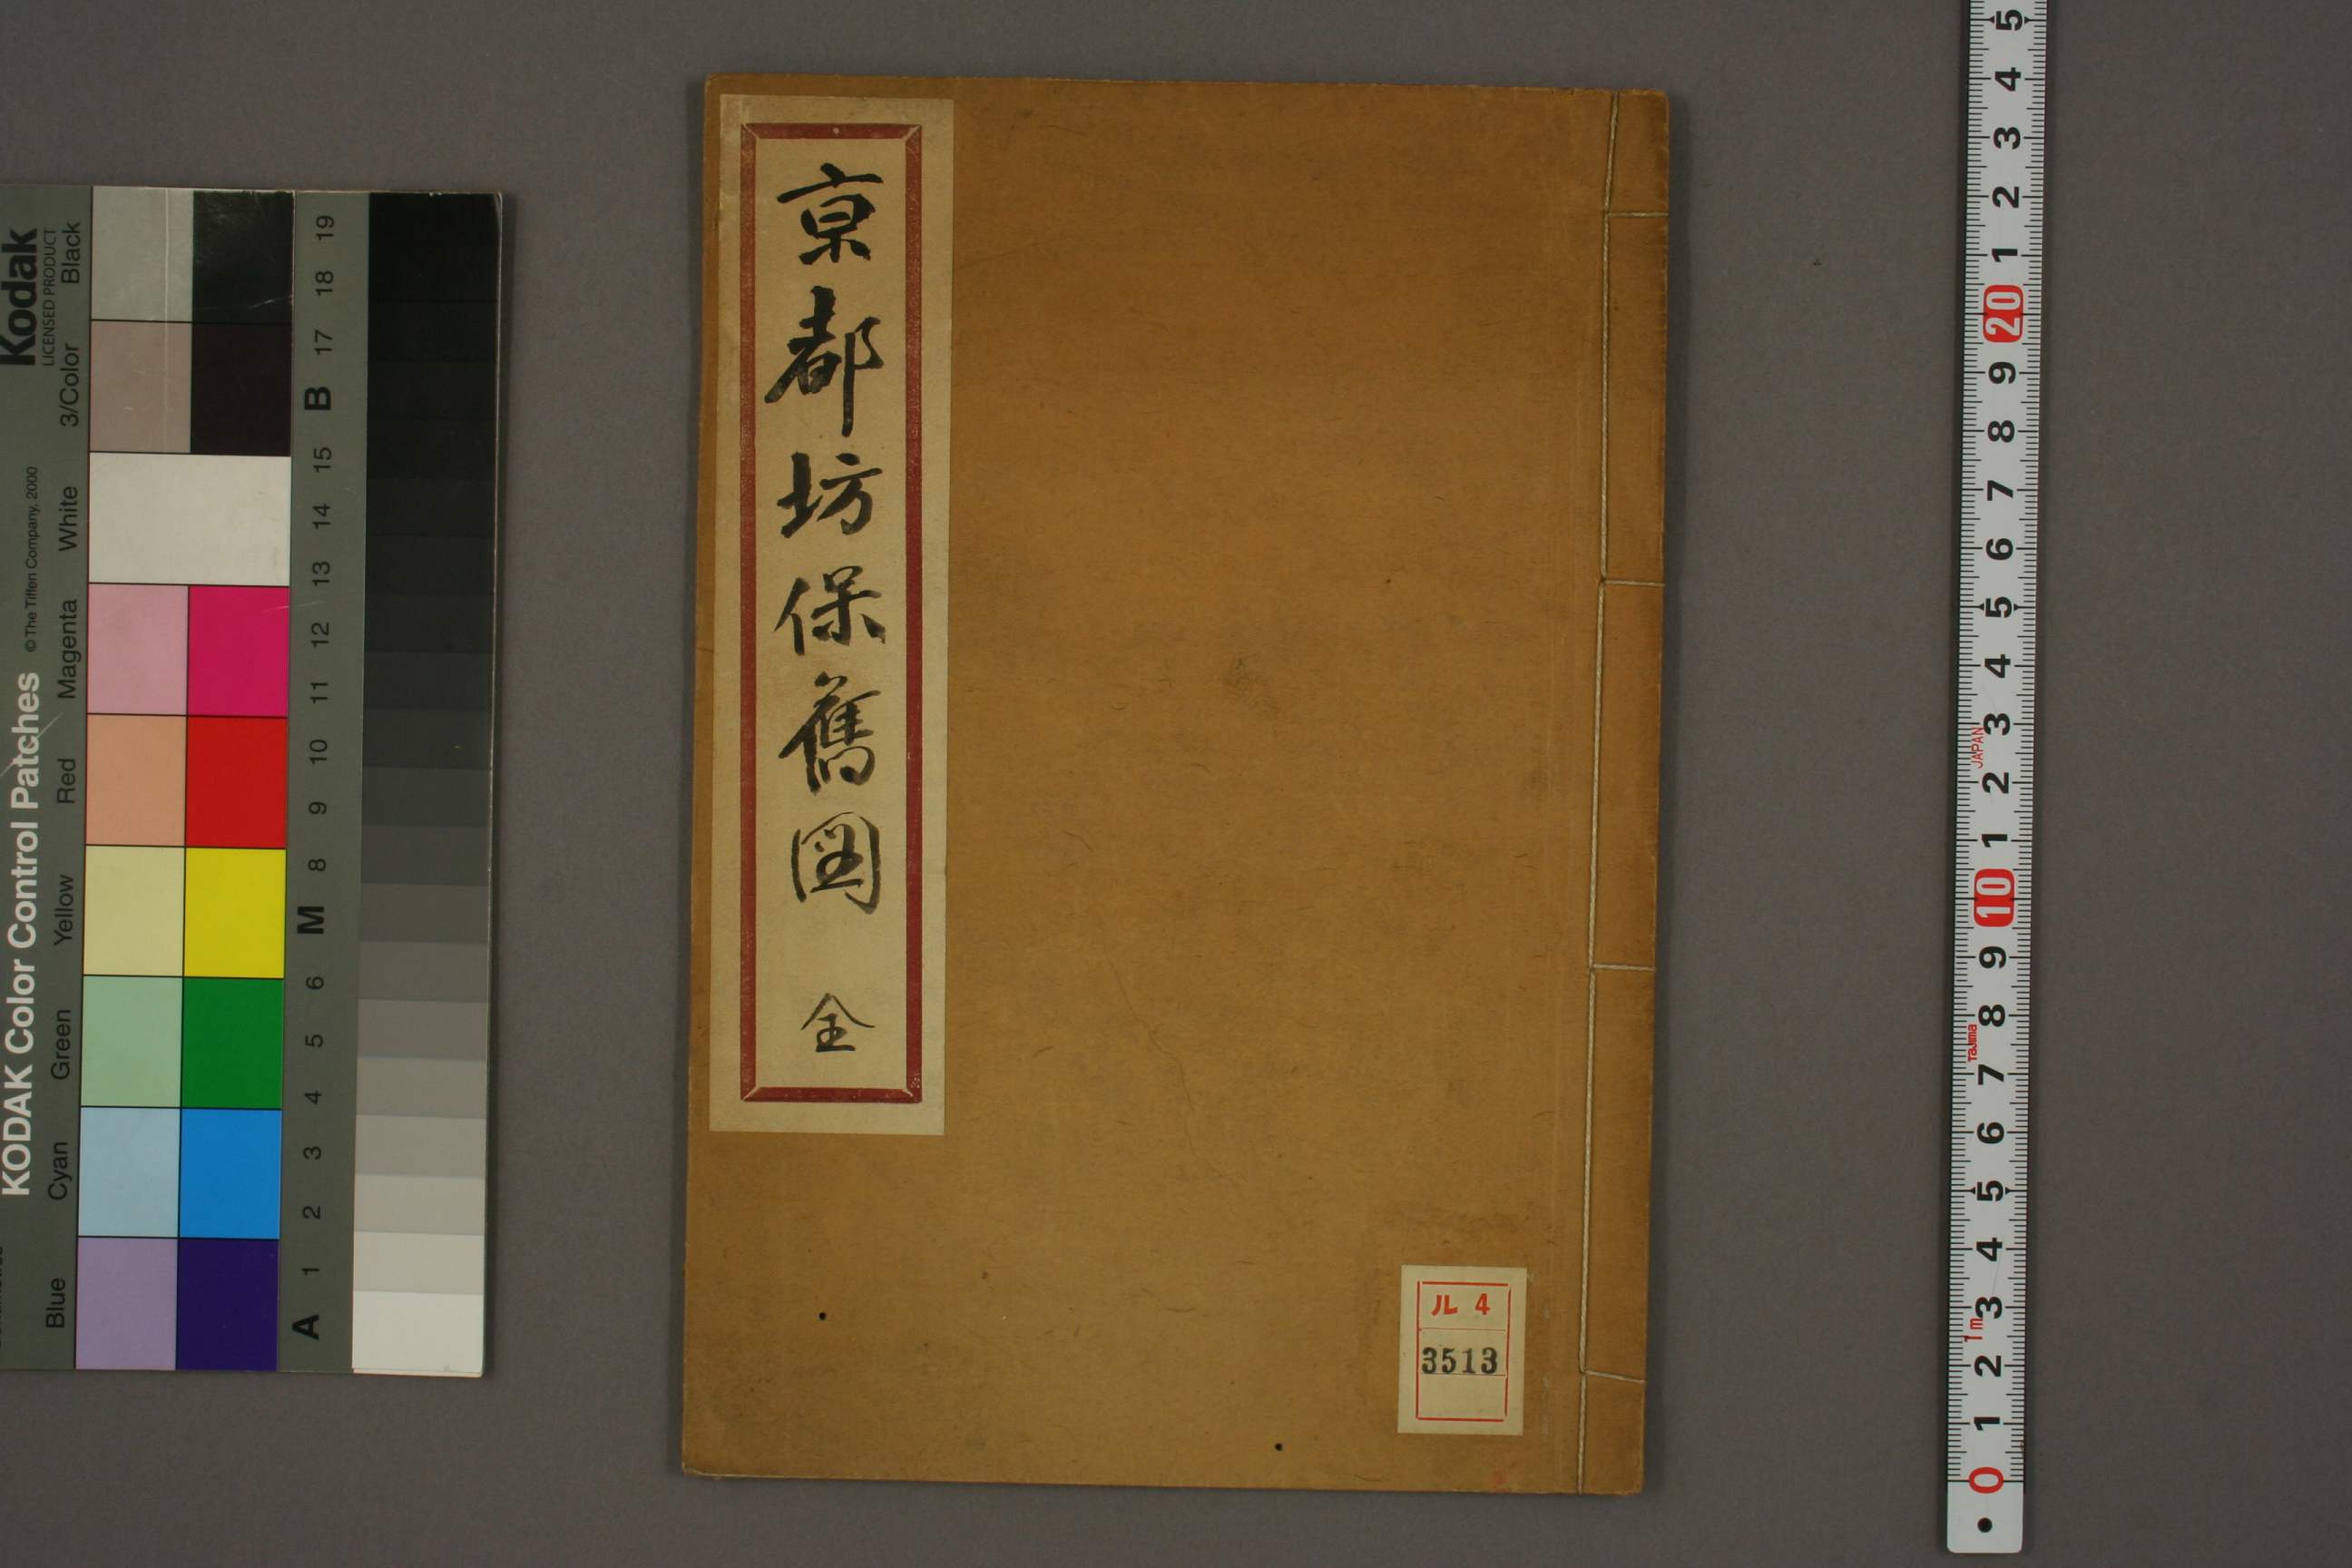 京都坊保舊図 全
ル 4
3513
Kodak
LICENSED PRODUCT
KODAK Color Control Patches
© The Tiffen Company, 2000
Blue Cyan Green Yellow Red Magenta White 3/Color Black
A 1 2 3 4 5 6 M 8 9 10 11 12 13 14 15 B 17 18 19
0 1 2 3 4 5 6 7 8 9 10 1 2 3 4 5 6 7 8 9 20 1 2 3 4 5
1m
Tajima
JAPAN